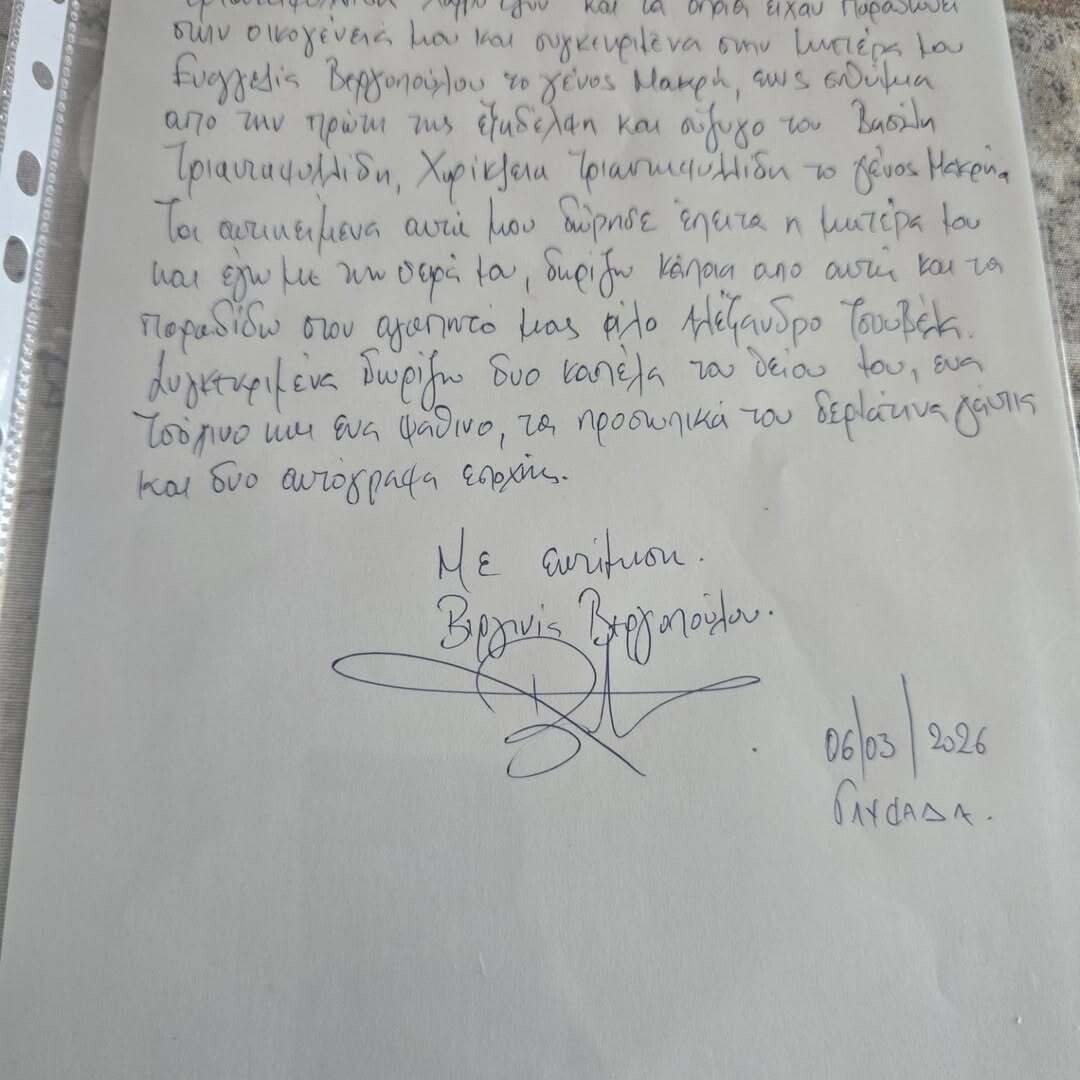 και τα οποία είχαν παραδωθεί
στην οικογένειά μου και συγκεκριμένα στην μητέρα μου
Ευαγγελία Βεργοπούλου το γένος Μακρή, ως ενθύμια
από την πρώτη της εξαδέλφη και σύζυγο του Βασίλη
Τριανταφυλλίδη, Χαρίκλεια Τριανταφυλλίδη το γένος Μακρή.
Τα αντικείμενα αυτά μου δώρησε έπειτα η μητέρα μου
και εγώ με την σειρά μου, δωρίζω κάποια από αυτά και τα
παραδίδω στον αγαπητό μας φίλο Αλέξανδρο Τσουβέλα.
Συγκεκριμένα δωρίζω δυο καπέλα του θείου μου, ενα
τσόχινο και ενα ψάθινο, τα προσωπικά του δερμάτινα γάντια
και δυο αυτόγραφα εποχής.
Με εκτίμηση.
Βιργινία Βεργοπούλου.
06/03/2026
ΓΛΥΦΑΔΑ.